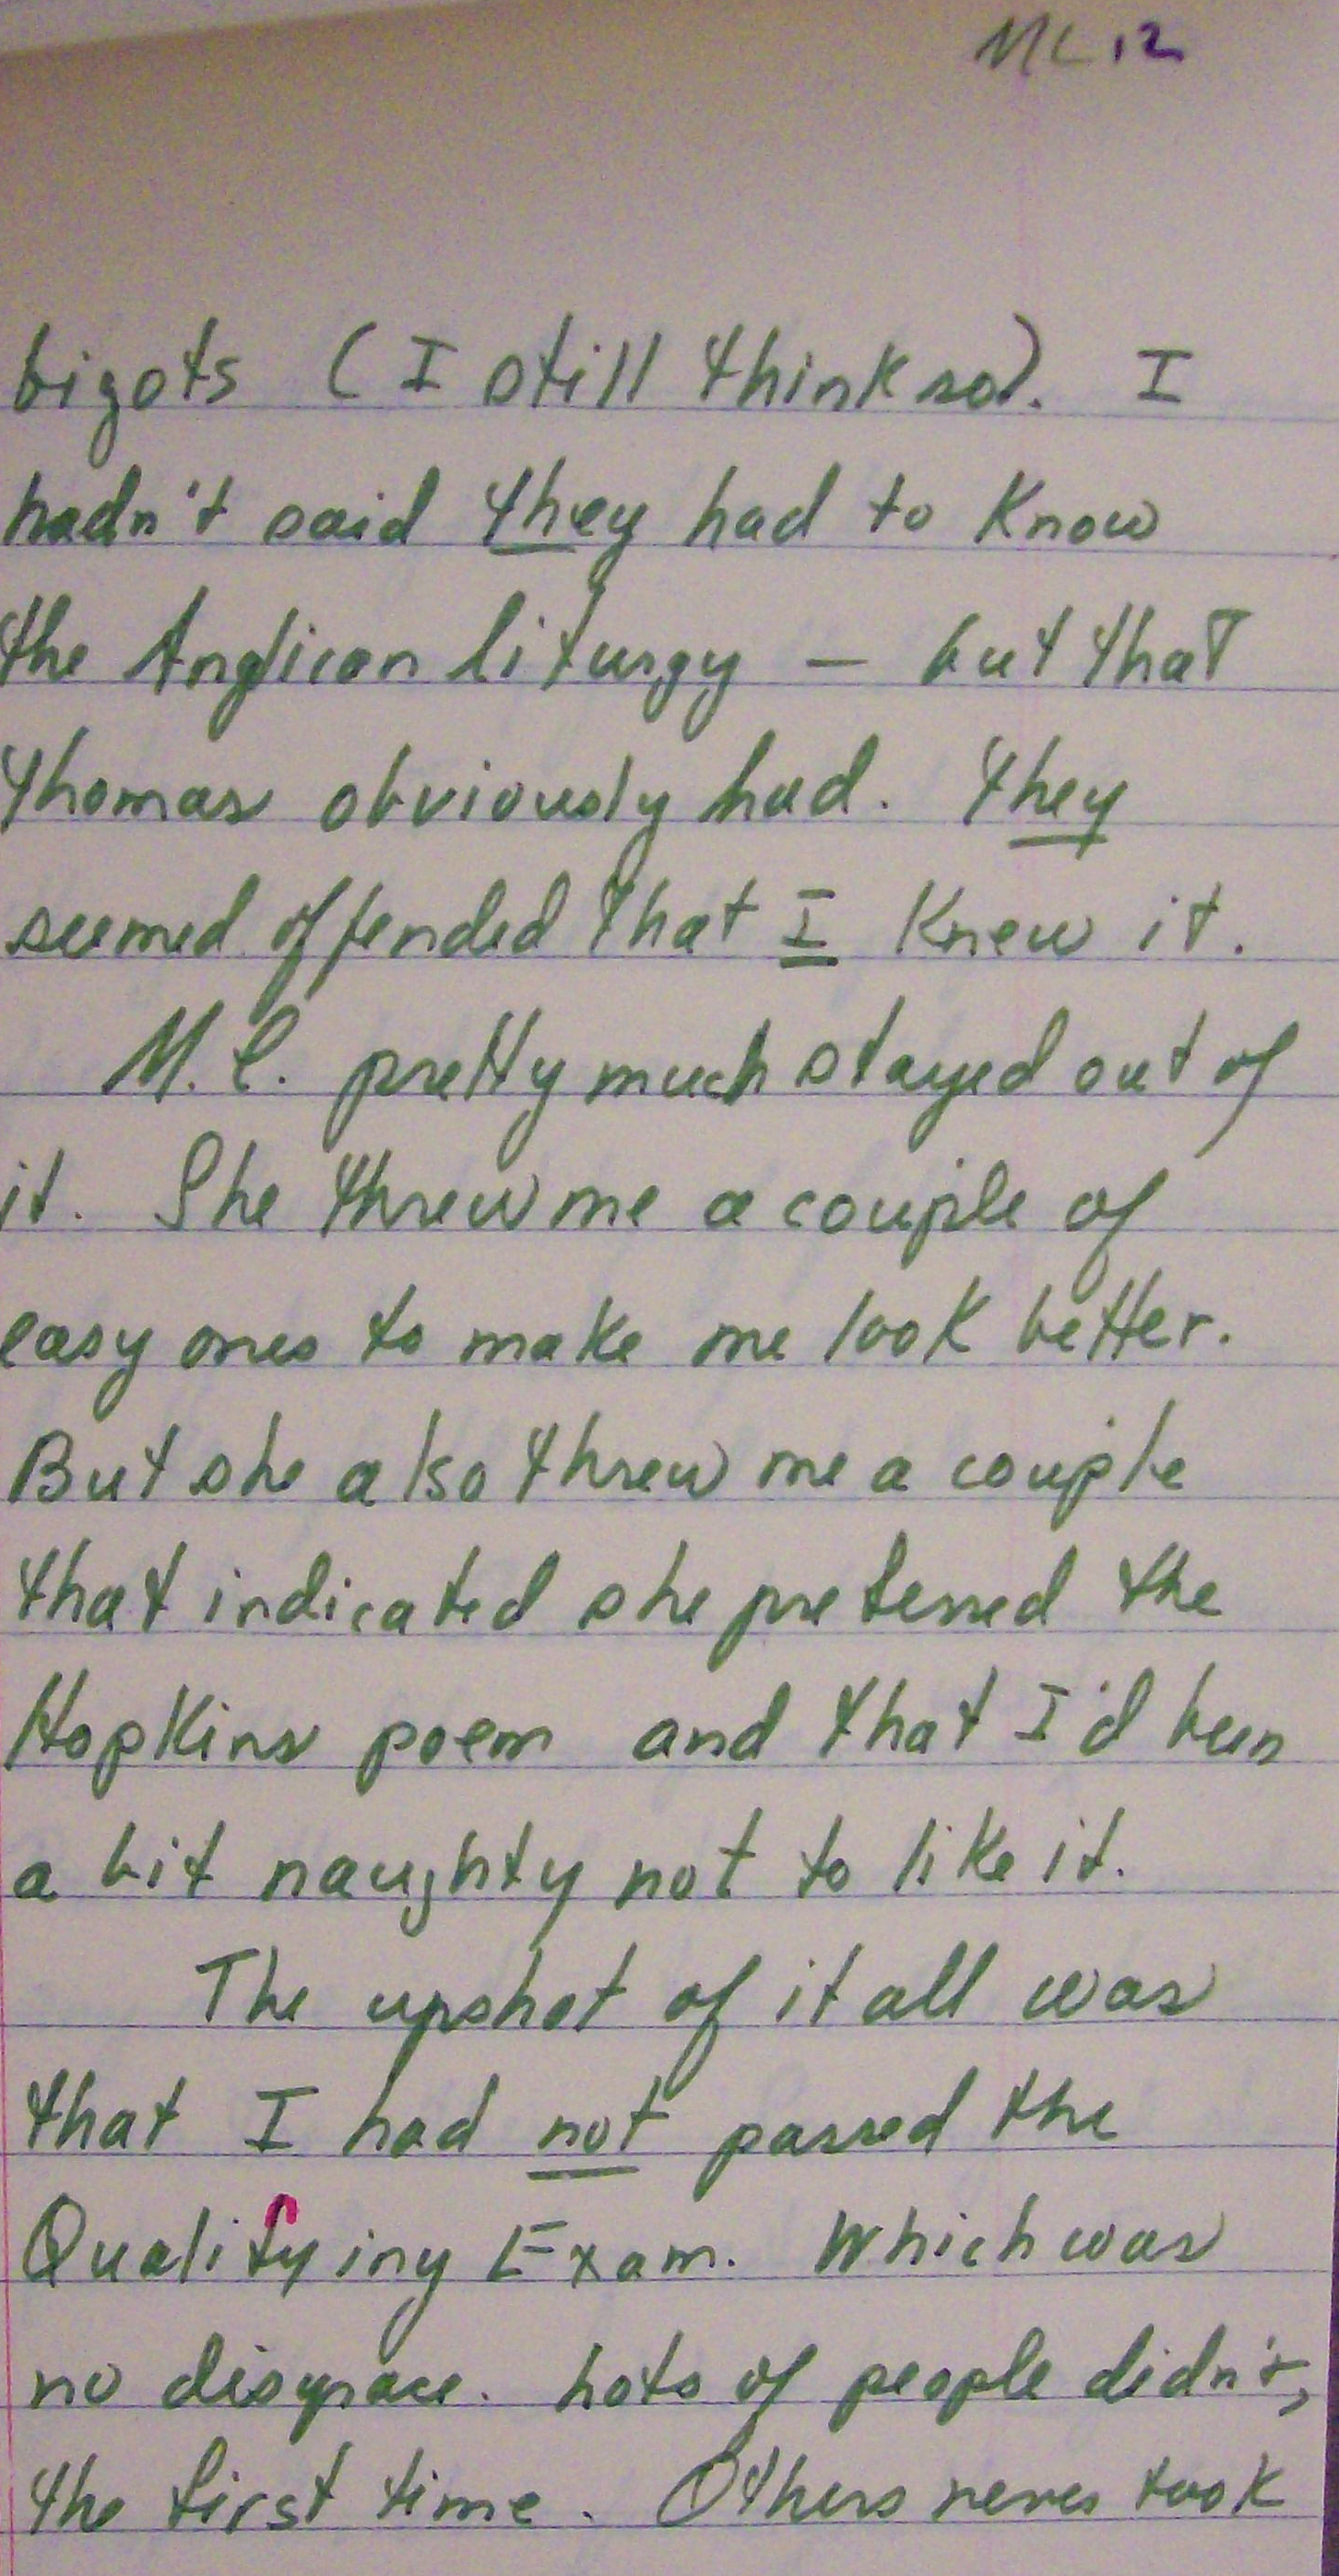 MC 12
bigots (I still think so). I
hadn't said they had to know
the Anglican liturgy — but that
Thomas obviously had. They
seemed offended that I knew it.
M.C. pretty much stayed out of
it. She threw me a couple of
easy ones to make me look better.
But she also threw me a couple
that indicated she preferred the
Hopkins poem and that I'd been
a bit naughty not to like it.
The upshot of it all was
that I had not passed the
Qualifying Exam. Which was
no disgrace. Lots of people didn't,
the first time. Others never took